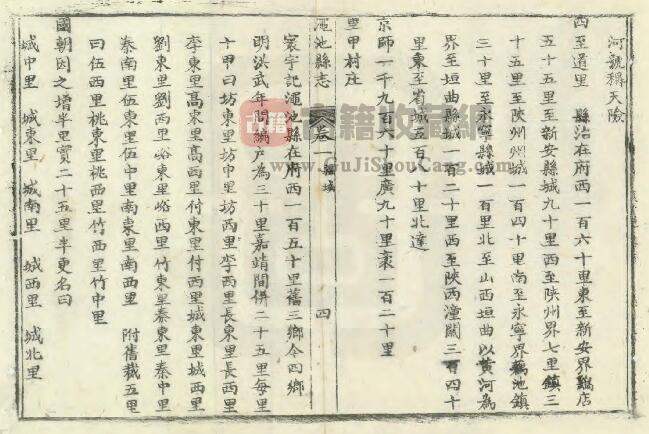 河號稱天險
四至道里　縣治在府西一百六十里東至新安界鐵店
五十五里至新安縣城九十里西至陝州界七里鎮三
十五里至陝州州城一百四十里南至永寧界藕池鎮
三十里至永寧縣城一百里北至山西垣曲以黃河為
界至垣曲縣城一百二十里西至陝西潼關三百四十
里東至省城五百八十里北達
京師一千九百六十里廣九十里袤一百二十里
里甲村庄
澠池縣志　卷一　疆域　四
寰宇記澠池縣在府西一百五十里舊三鄉今四鄉
明洪武年間編戶為三十里嘉靖間併二十五里每里
十甲曰坊東里坊中里坊西里李西里長東里長西里
李東里高東里高西里付東里付西里城東里城西里
劉東里劉西里峪東里峪西里竹東里秦東里秦中里
秦南里伍東里伍中里南東里南西里　附舊裁五里
曰伍西里桃東里桃西里竹西里竹中里
國朝因之增半里實二十五里半更名曰
城中里　城東里　城南里　城西里　城北里
古籍收藏网
www.GuJiShouCang.com